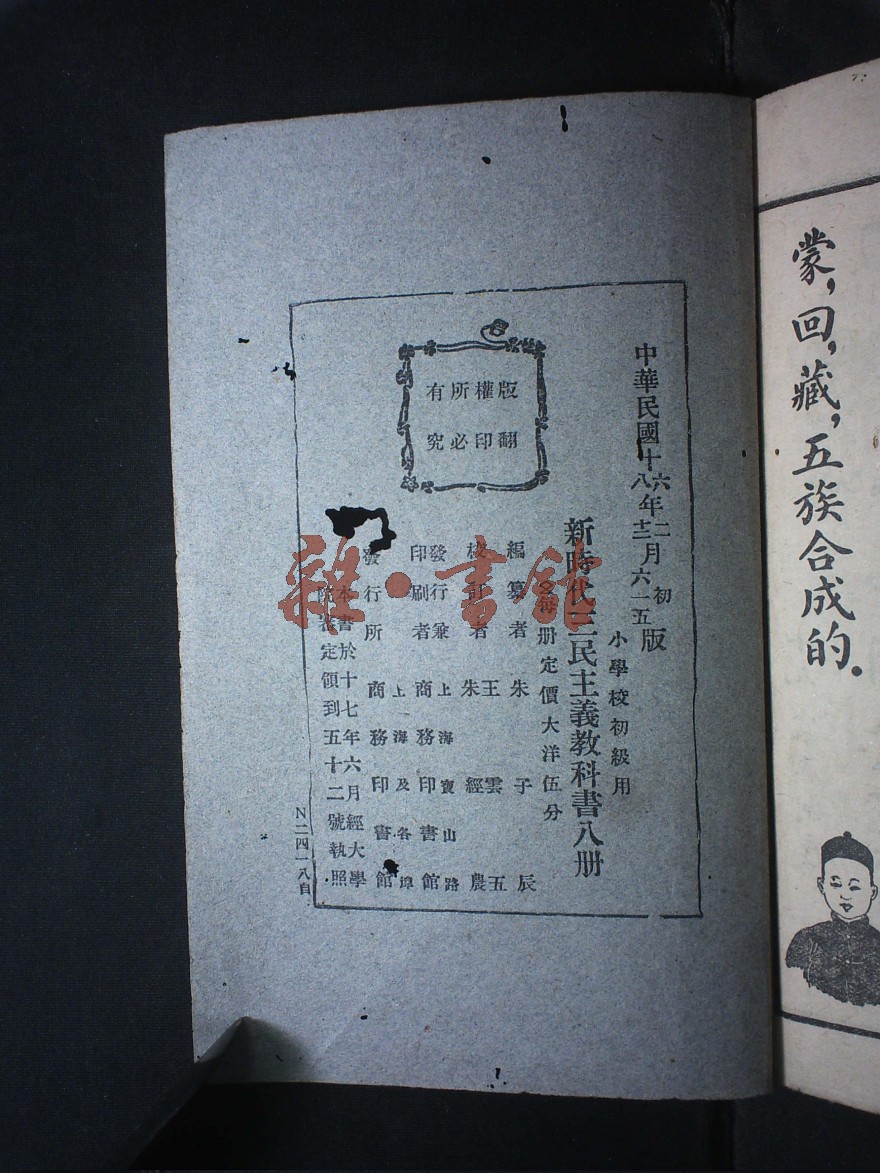 蒙,回,藏,五族合成的.
中華民國十六年二月初版
十八年十二月六一五版
小學校初級用
新時代三民主義教科書八册
每册定價大洋伍分
版權所有
翻印必究
編纂者 朱子辰
校訂者 王雲五
朱經農
發行兼印刷者 上海寶山路
商務印書館
發行所 上海及各埠
商務印書館
本書於十七年六月經大學
院審定領到五十二號執照
N二四一八自
雜·書館